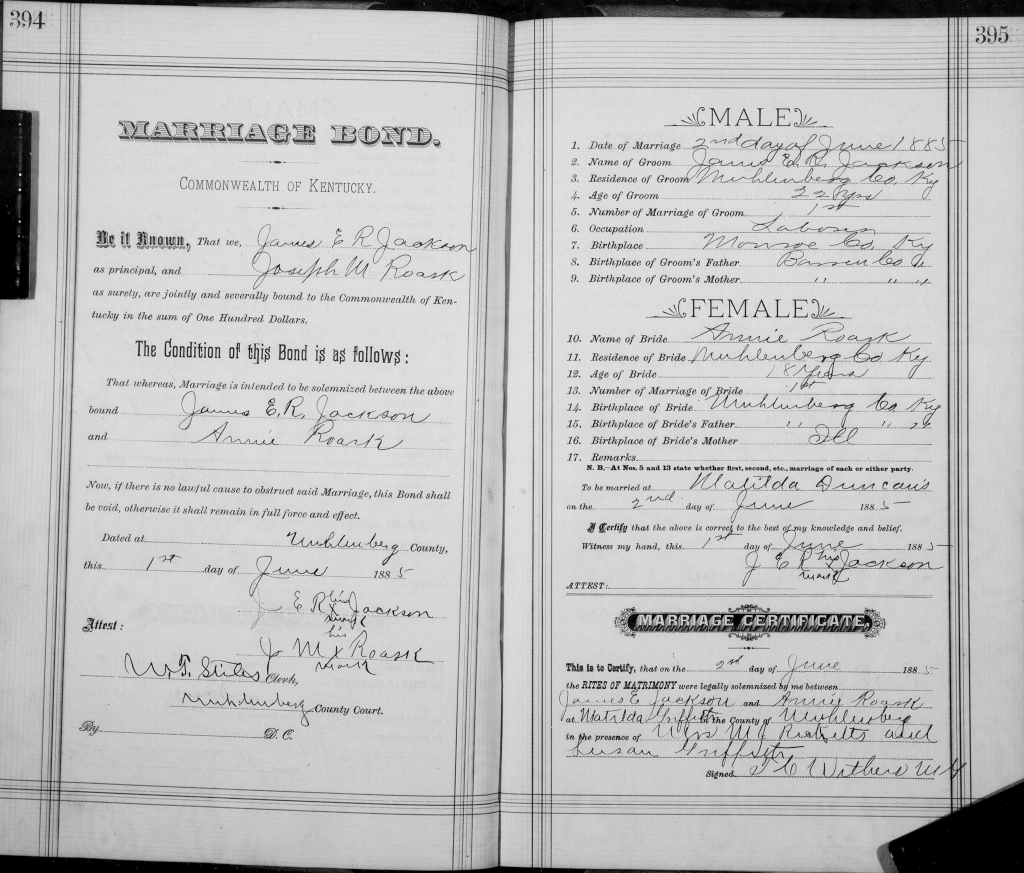 394
MARRIAGE BOND.
COMMONWEALTH OF KENTUCKY.
Be it Known, That we, James E R Jackson
as principal, and Joseph M Roark
as surety, are jointly and severally bound to the Commonwealth of Ken-
tucky in the sum of One Hundred Dollars.
The Condition of this Bond is as follows:
That whereas, Marriage is intended to be solemnized between the above
bound James E. R. Jackson
and Annie Roark
Now, if there is no lawful cause to obstruct said Marriage, this Bond shall
be void, otherwise it shall remain in full force and effect.
Dated at Muhlenberg County,
this 1st day of June 1885
J E R his x mark Jackson
Attest:
J M his x mark Roark
W. T. Stiles, Clerk,
Muhlenberg County Court.
By D. C.
395
MALE
1. Date of Marriage 2nd day of June 1885
2. Name of Groom James E. R. Jackson
3. Residence of Groom Muhlenberg Co. Ky
4. Age of Groom 22 yrs
5. Number of Marriage of Groom 1st
6. Occupation Laborer
7. Birthplace Monroe Co. Ky
8. Birthplace of Groom's Father Barren Co "
9. Birthplace of Groom's Mother " " "
FEMALE
10. Name of Bride Annie Roark
11. Residence of Bride Muhlenberg Co Ky
12. Age of Bride 18 Years
13. Number of Marriage of Bride 1st
14. Birthplace of Bride Muhlenberg Co. Ky
15. Birthplace of Bride's Father " " "
16. Birthplace of Bride's Mother Ill
17. Remarks.
N. B.—At Nos. 5 and 13 state whether first, second, etc., marriage of each or either party.
To be married at Matilda Duncan's
on the 2nd day of June 1885
I Certify that the above is correct to the best of my knowledge and belief.
Witness my hand, this 1st day of June 1885
J E R his x mark Jackson
ATTEST:
MARRIAGE CERTIFICATE.
This is to Certify, that on the 2nd day of June 1885
the RITES OF MATRIMONY were legally solemnized by me between
James E Jackson and Annie Roark
at Matilda Griffith in the County of Muhlenberg
in the presence of Wm M Ricketts and
Susan Griffith
Signed T C Withers M G